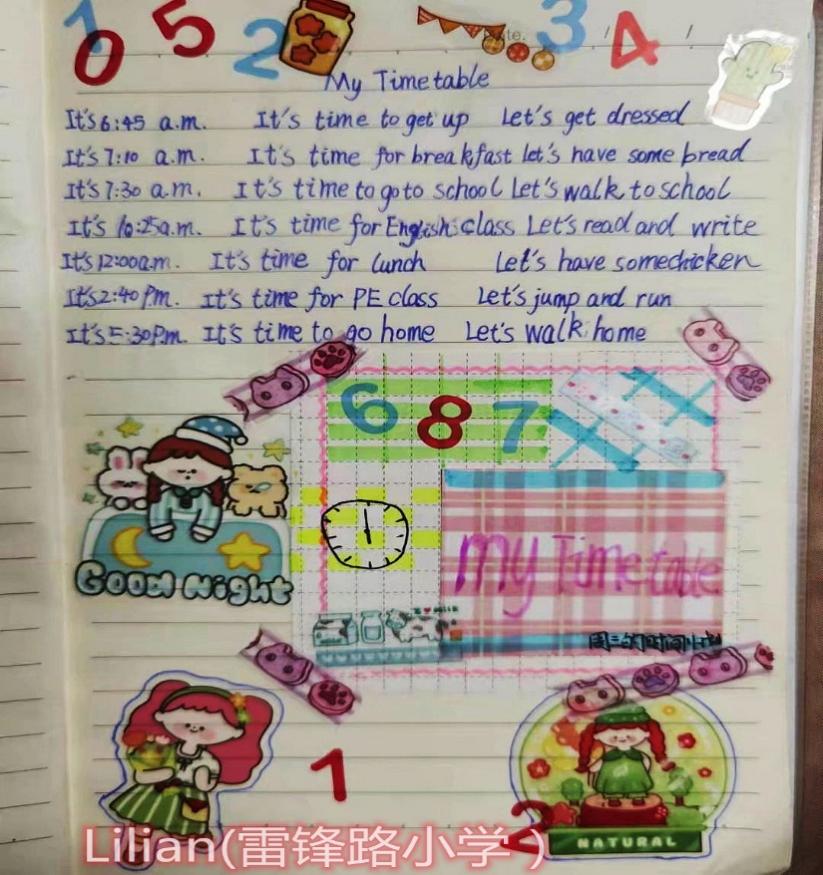 1 0 5 2 3 4
Date. / /
My Timetable
It's 6:45 a.m. It's time to get up Let's get dressed
It's 7:10 a.m. It's time for breakfast let's have some bread
It's 7:30 a.m. It's time to go to school Let's walk to school
It's 10:25 a.m. It's time for English class Let's read and write
It's 12:00 a.m. It's time for lunch Let's have some chicken
It's 2:40 Pm. It's time for PE class Let's jump and run
It's 5:30 Pm. It's time to go home Let's walk home
6 8 7
my Timetable
GOOD NIGHT
周三的时间计划
1
2
NATURAL
Lilian(雷锋路小学)